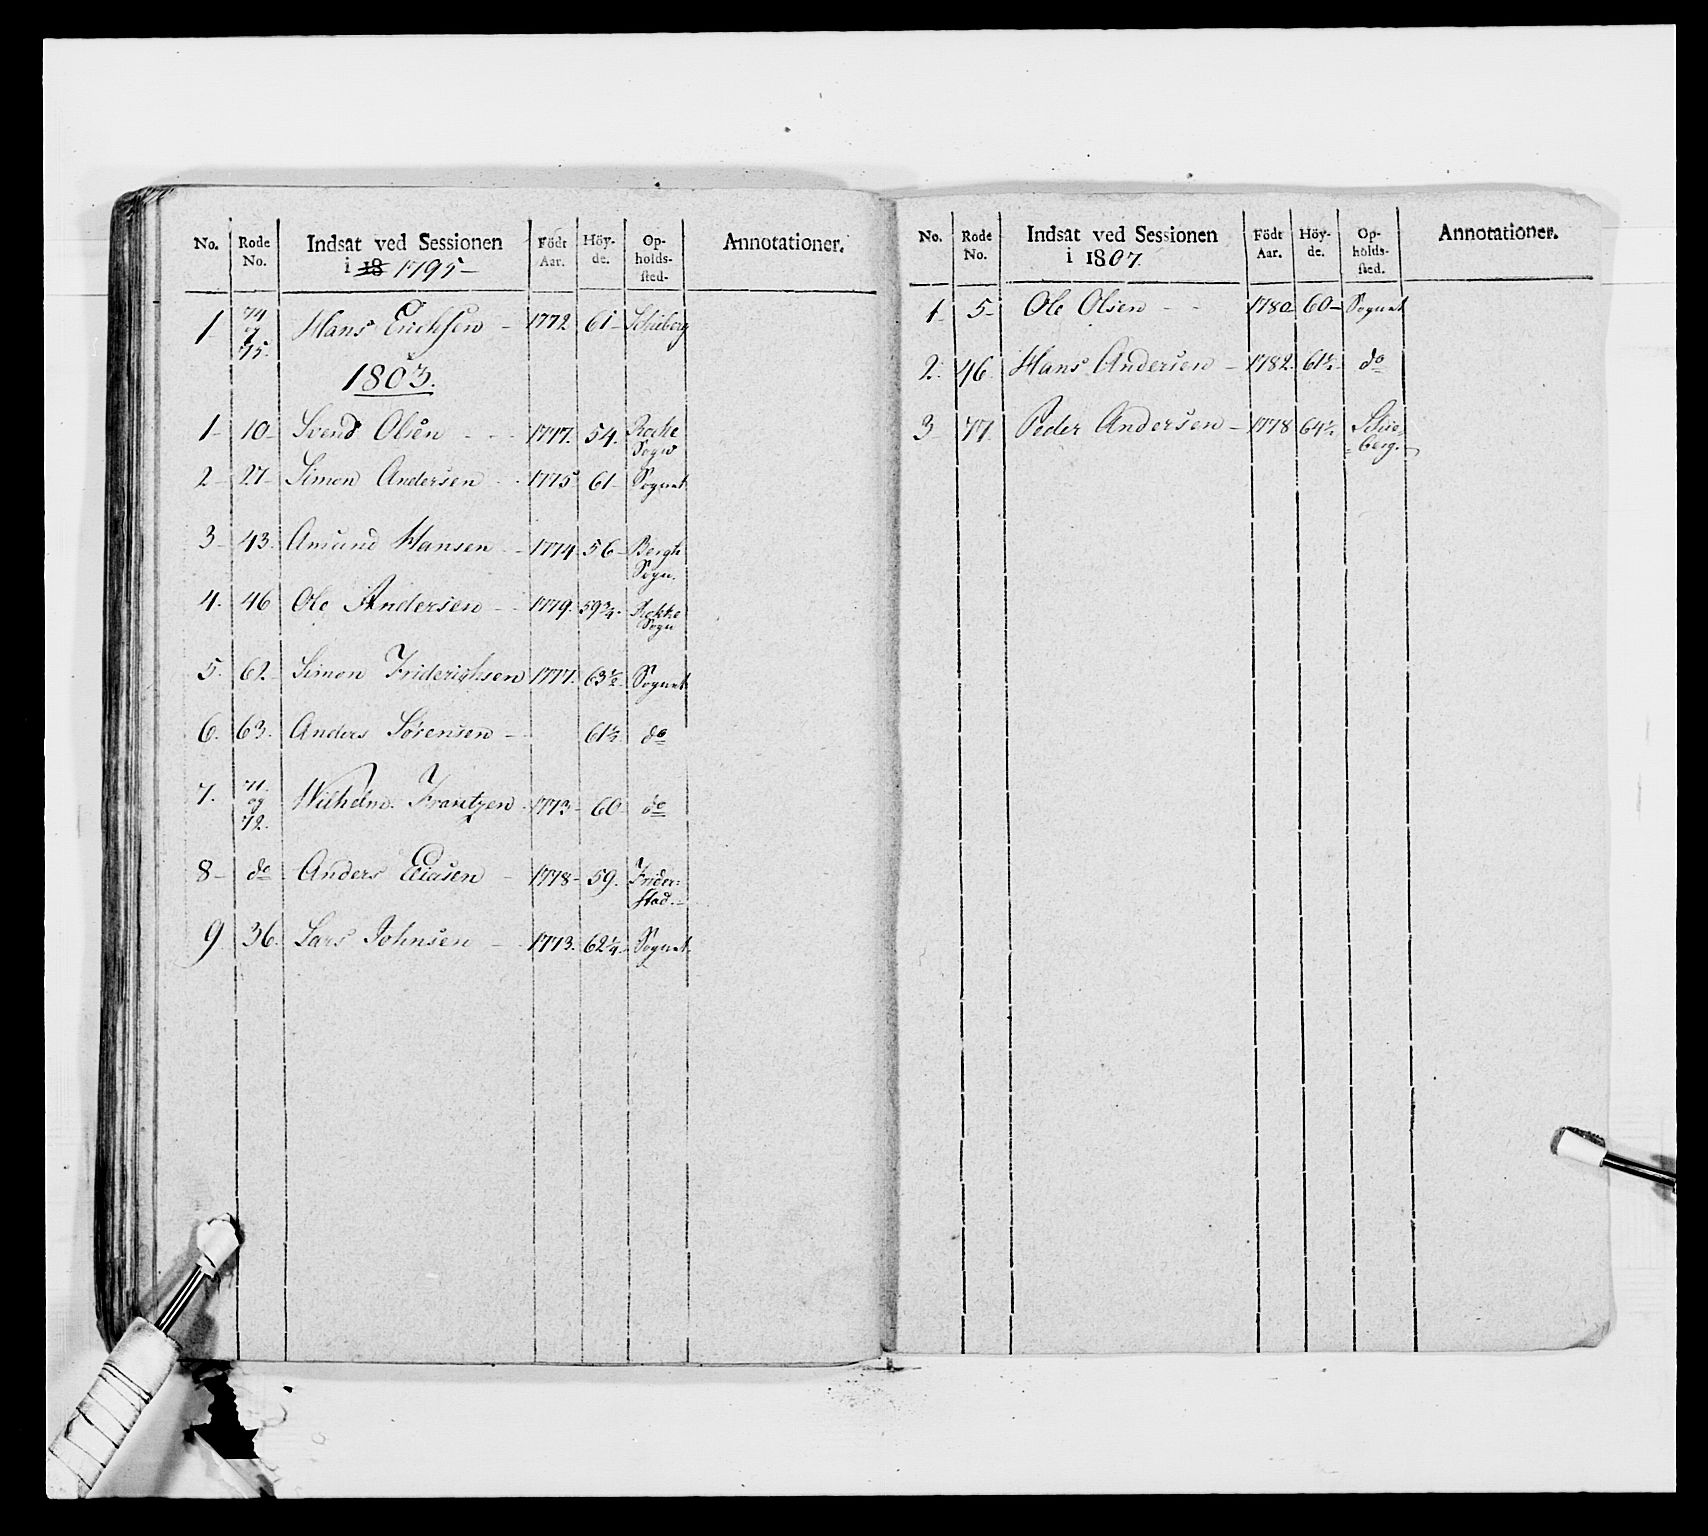 No. Rode No. Indsat ved Sessionen i 18 1795 — Födt Aar. Höy-de. Op-holds-sted. Annotationer.
1 74 og 75. Hans Erichsen – 1772 61– Schieberg
1803.
1– 10– Svend Olsen - - - 1777. 54. Rocke Sogn
2– 27– Simon Andersen - - 1775 61– Sognet
3– 43. Amund Hansen - - 1774 56– Bergh Sogn.
4. 46 Ole Andersen - - 1779. 59¾. Rokke Sogn
5. 62 Simon Friderichsen 1777. 63½ Sognet
6. 63. Anders Sörensen - - 61½ do
7. 71. og 72. Wilhelm Frantzen. 1773– 60 do
8– do Anders Eliasen – 1778– 59. Frider: stad.–
9 36. Lars Johnsen – 1773. 62¼. Sognet.
No. Rode No. Indsat ved Sessionen i 1807. Födt Aar. Höy-de. Op-holds-sted. Annotationer.
1. 5– Ole Olsen - - 1780 60– Sognet
2. 46. Hans Andersen – 1782. 61½ do
3 77 Peder Andersen – 1778 64½ Skie-berg.–